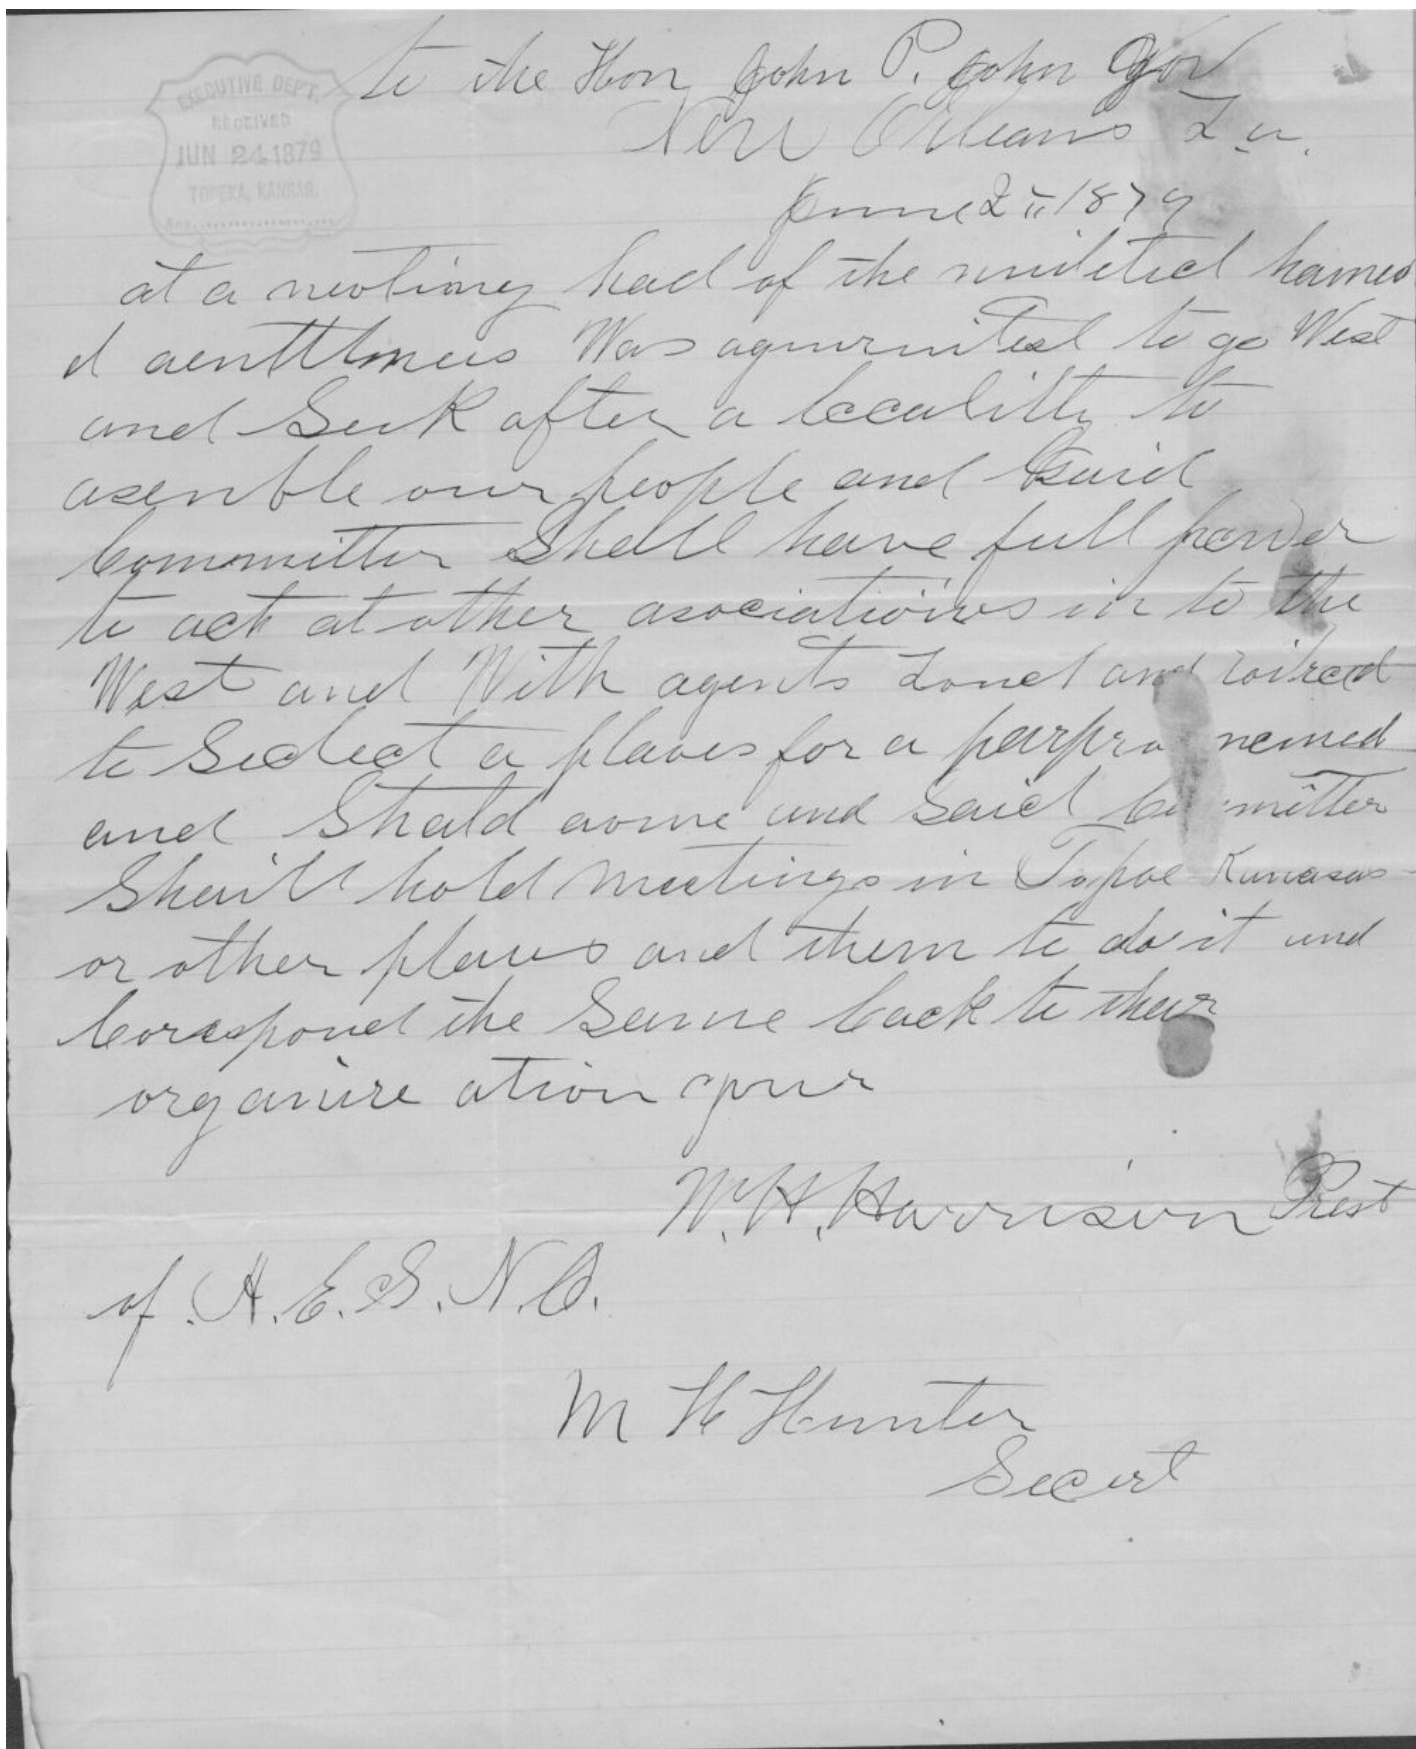 EXECUTIVE DEPT.
RECEIVED
JUN 24 1879
TOPEKA, KANSAS.
to the Hon John P. John Gov
New Orleans La.
June 2 1879
at a meeting had of the named
Was to go West
and Seek after a locality to
asemble our people and Said
Committer Shall have full power
to act at other asociations in to the
West and With agents Land and railroad
to Seclect a places for a named
and and Said Committer
Shall hold meetings in Topae Kunasas
or other places and them to do it and
Corespond the Same back to their
organize ation your
W. H. Harrison Prest
of A. E. S. N. O.
M H Hunter
Secert